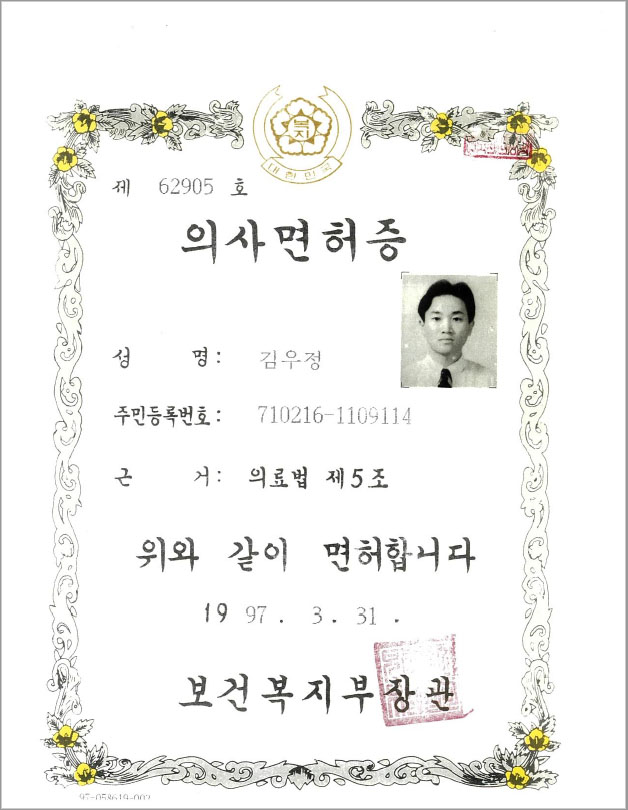 복지
대한민국
제 62905 호
의사면허증
성 명: 김우정
주민등록번호: 710216-1109114
근 거: 의료법 제5조
위와 같이 면허합니다
1997. 3. 31.
보건복지부장관